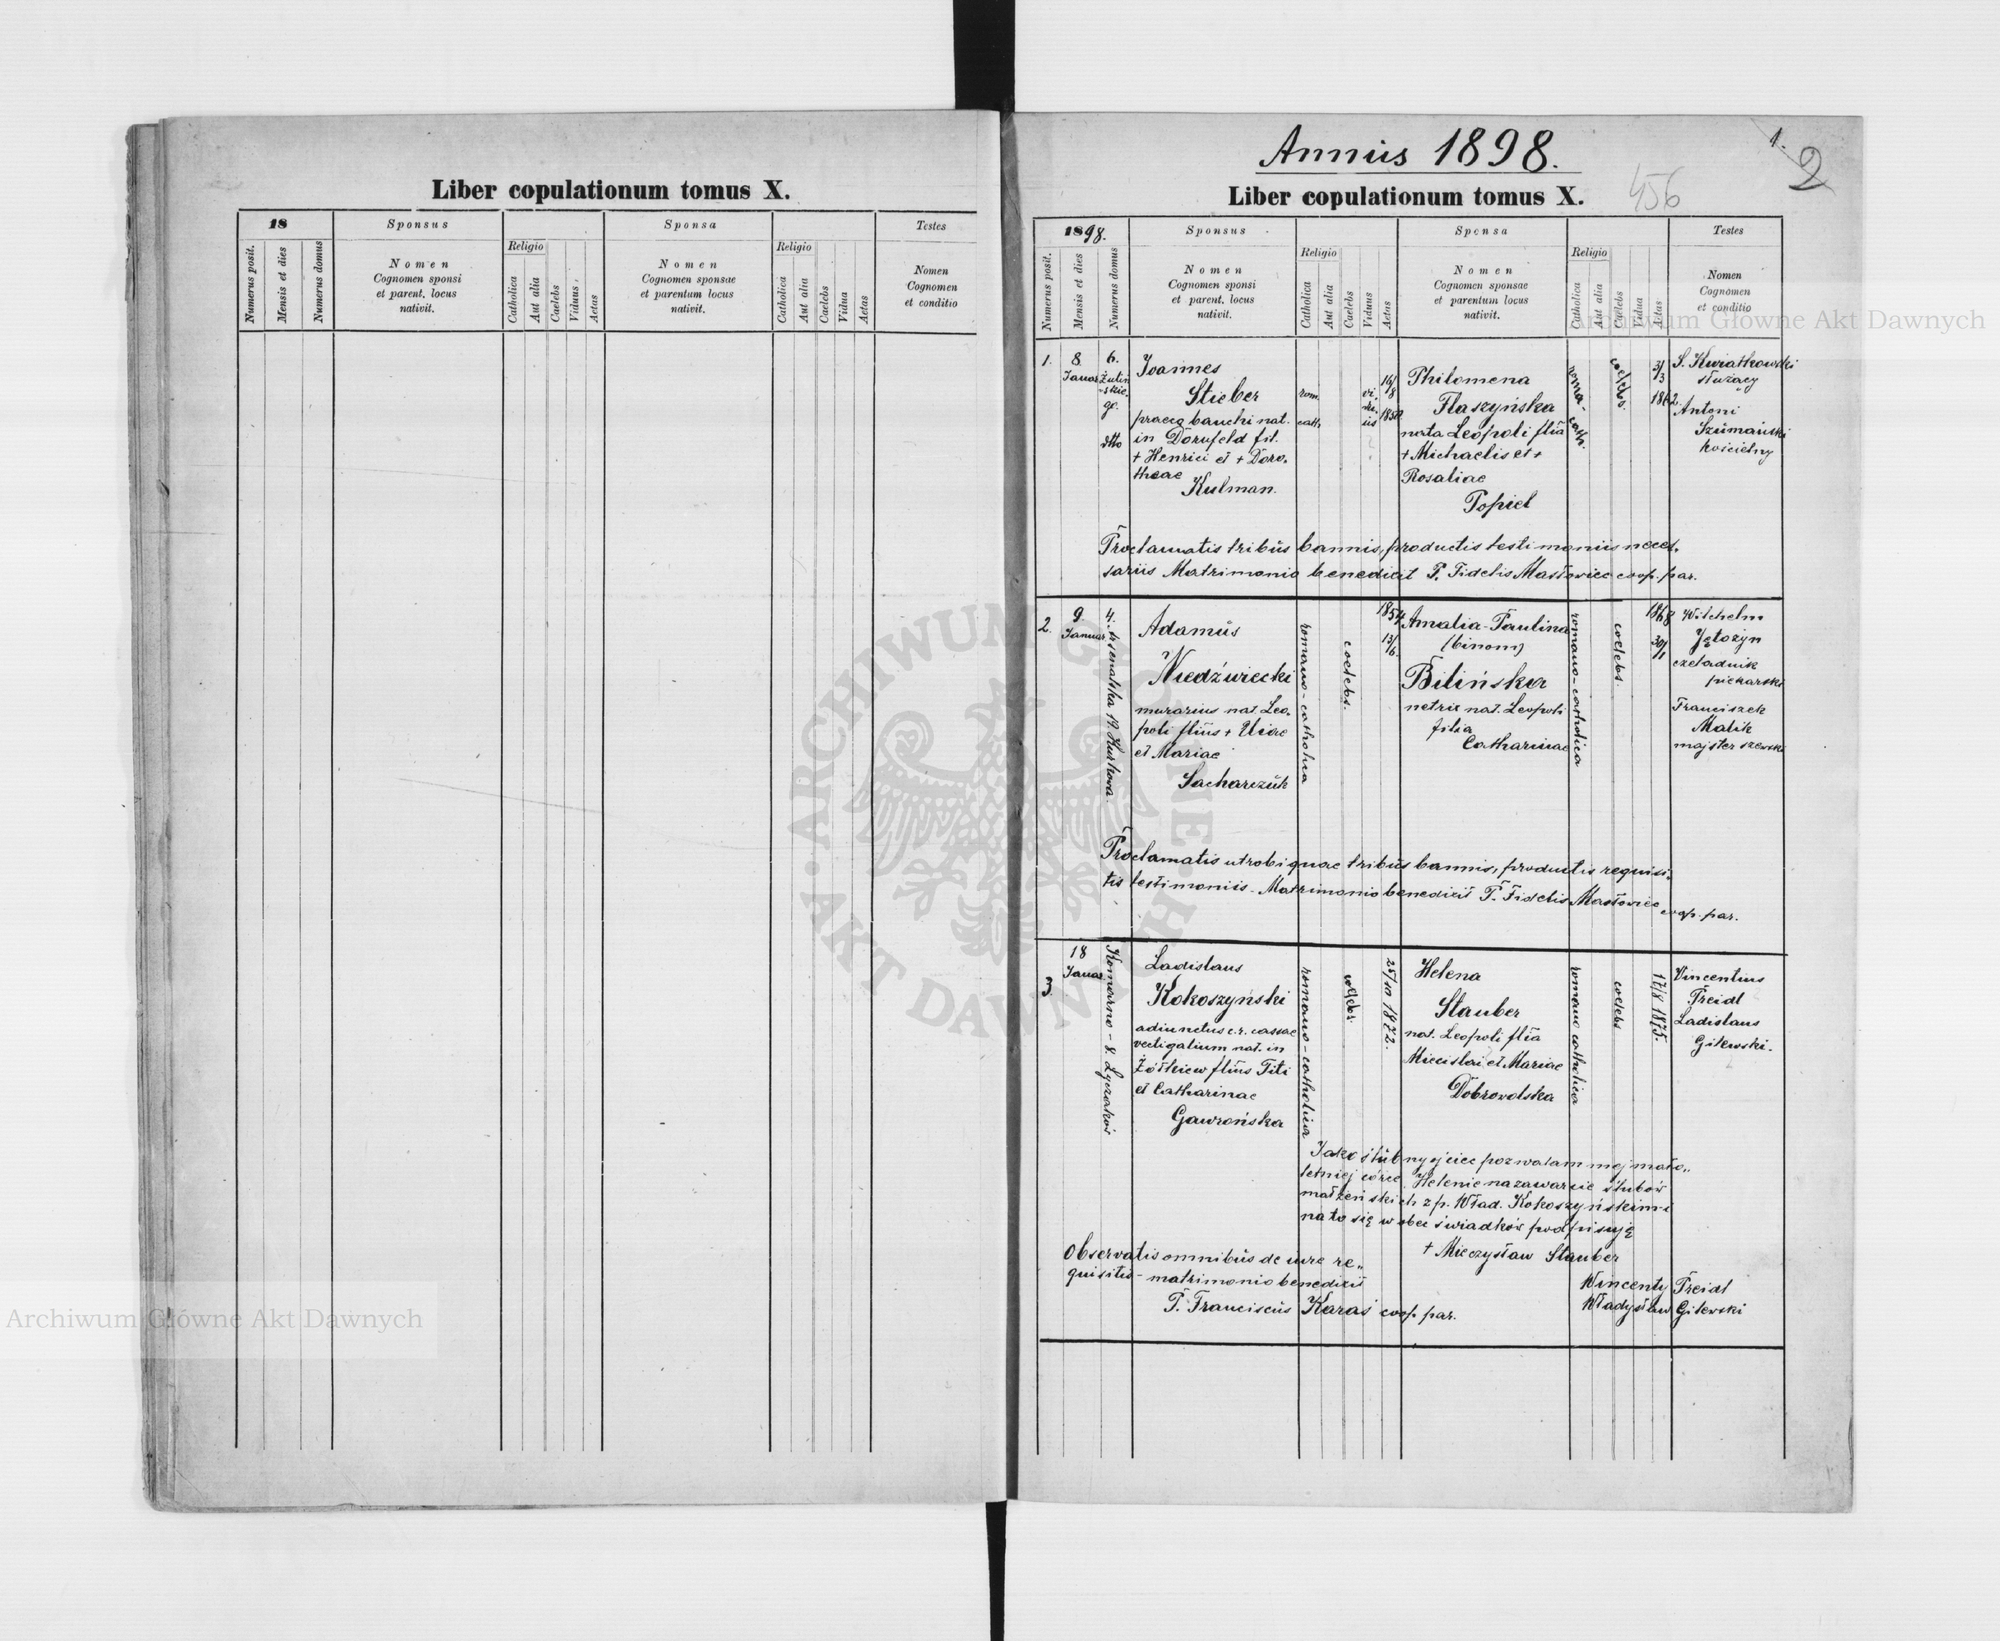 Liber copulationum tomus X.
18
Sponsus
Sponsa
Testes
Numerus posit.
Mensis et dies
Numerus domus
Nomen
Cognomen sponsi
et parent. locus
nativit.
Religio
Catholica
Aut alia
Caelebs
Viduus
Aetas
Nomen
Cognomen sponsae
et parentum locus
nativit.
Religio
Catholica
Aut alia
Caelebs
Vidua
Aetas
Nomen
Cognomen
et conditio
Annus 1898.
1.
2
456
Liber copulationum tomus X.
1898.
Sponsus
Sponsa
Testes
Numerus posit.
Mensis et dies
Numerus domus
Nomen
Cognomen sponsi
et parent. locus
nativit.
Religio
Catholica
Aut alia
Caelebs
Viduus
Aetas
Nomen
Cognomen sponsae
et parentum locus
nativit.
Religio
Catholica
Aut alia
Caelebs
Vidua
Aetas
Nomen
Cognomen
et conditio
1.
8
Januar
6.
Żuliń
skie-
go.
dtto
Joannes
Stieber
nat.
in Dornfeld fil.
+ Henrici et + Doro-
theae
Kulman.
rom.
cath
vi-
du-
us
16/8
1850
Philomena
Flaszyńska
nata Leopoli filia
+ Michaelis et +
Rosaliae
Popiel
roma-cath.
coelebs.
3/3
1862
S. Kwiatkowski
służący
Antoni
Szumański
kościelny
Proclamatis tribus bannis, productis testimoniis neces-
sariis Matrimonio benedixit P. Fidelis Masłowiec coop. par.
2.
9
Januar
4. Arsenalska 19. Kurkowa.
Adamus
Niedźwiecki
murarius nat. Leo-
poli filius +
et Mariae
Sacharczuk
romano-catholica
coelebs.
1854
13/6.
Amalia-Paulina
(binom)
Bilińska
nat. Leopoli
filia
Catharinae
romano-catholica
coelebs.
1868
30/
Wilhelm
czeladnik
piekarski
Franciszek
Malik
majster szewski
Proclamatis utrobique tribus bannis, productis requisi-
tis testimoniis. Matrimonio benedixit P. Fidelis Masłowiec
coop. par.
3.
18
Januar
Komarno - 8. Łyczaków
Ladislaus
Kokoszyński
adiunctus c.r. cassae
vectigalium nat. in
Żółkiew filius Titi
et Catharinae
Gawrońska
romano-catholica
coelebs.
25/10 1872.
Helena
Stauber
nat. Leopoli filia
Miecislai et Mariae
Dobrowolska
romano catholica
coelebs
17/8 1875.
Vincentius
Treidl
Ladislaus
Gilewski.
Jako ślubny ojciec pozwalam mej mało-
letniej córce Helenie na zawarcie ślubów
małżeńskich z p. Wład. Kokoszyńskim i
na to się w obec świadków podpisuję
+ Mieczysław Stauber
Observatis omnibus de iure re-
quisitis - matrimonio benedixit
P. Franciscus Karaś coop. par.
Wincenty Treidl
Władysław Gilewski
Archiwum Główne Akt Dawnych
Archiwum Główne Akt Dawnych
ARCHIWUM GŁÓWNE · AKT DAWNYCH ·